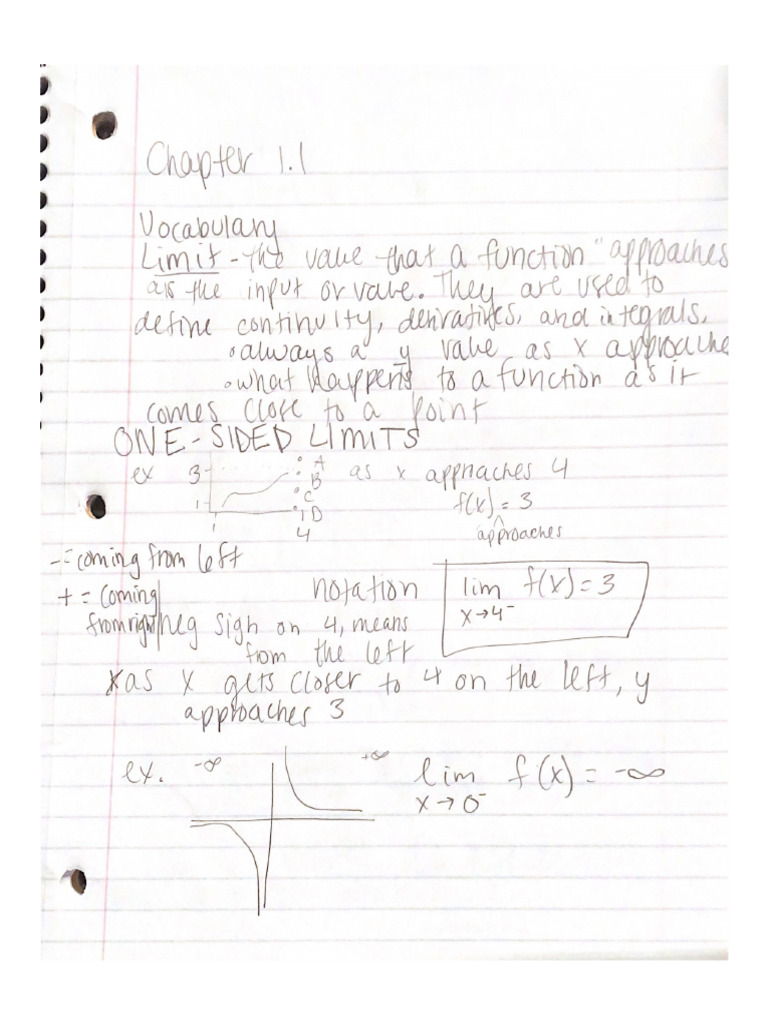 Chapter 1.1
Vocabulary
Limit - The value that a function "approaches
as the input or value. They are used to
define continuity, derivatives, and integrals.
• always a y value as x approache
• what happens to a function as it
comes close to a point
ONE-SIDED LIMITS
ex 3 A as x approaches 4
B
C f(x) = 3
1 D
1 4 approaches
- = coming from left
+ = coming notation lim f(x) = 3
x→4⁻
from right neg sign on 4, means
from the left
as x gets closer to 4 on the left, y
approaches 3
ex. -∞ +∞ lim f(x) = -∞
x→0⁻